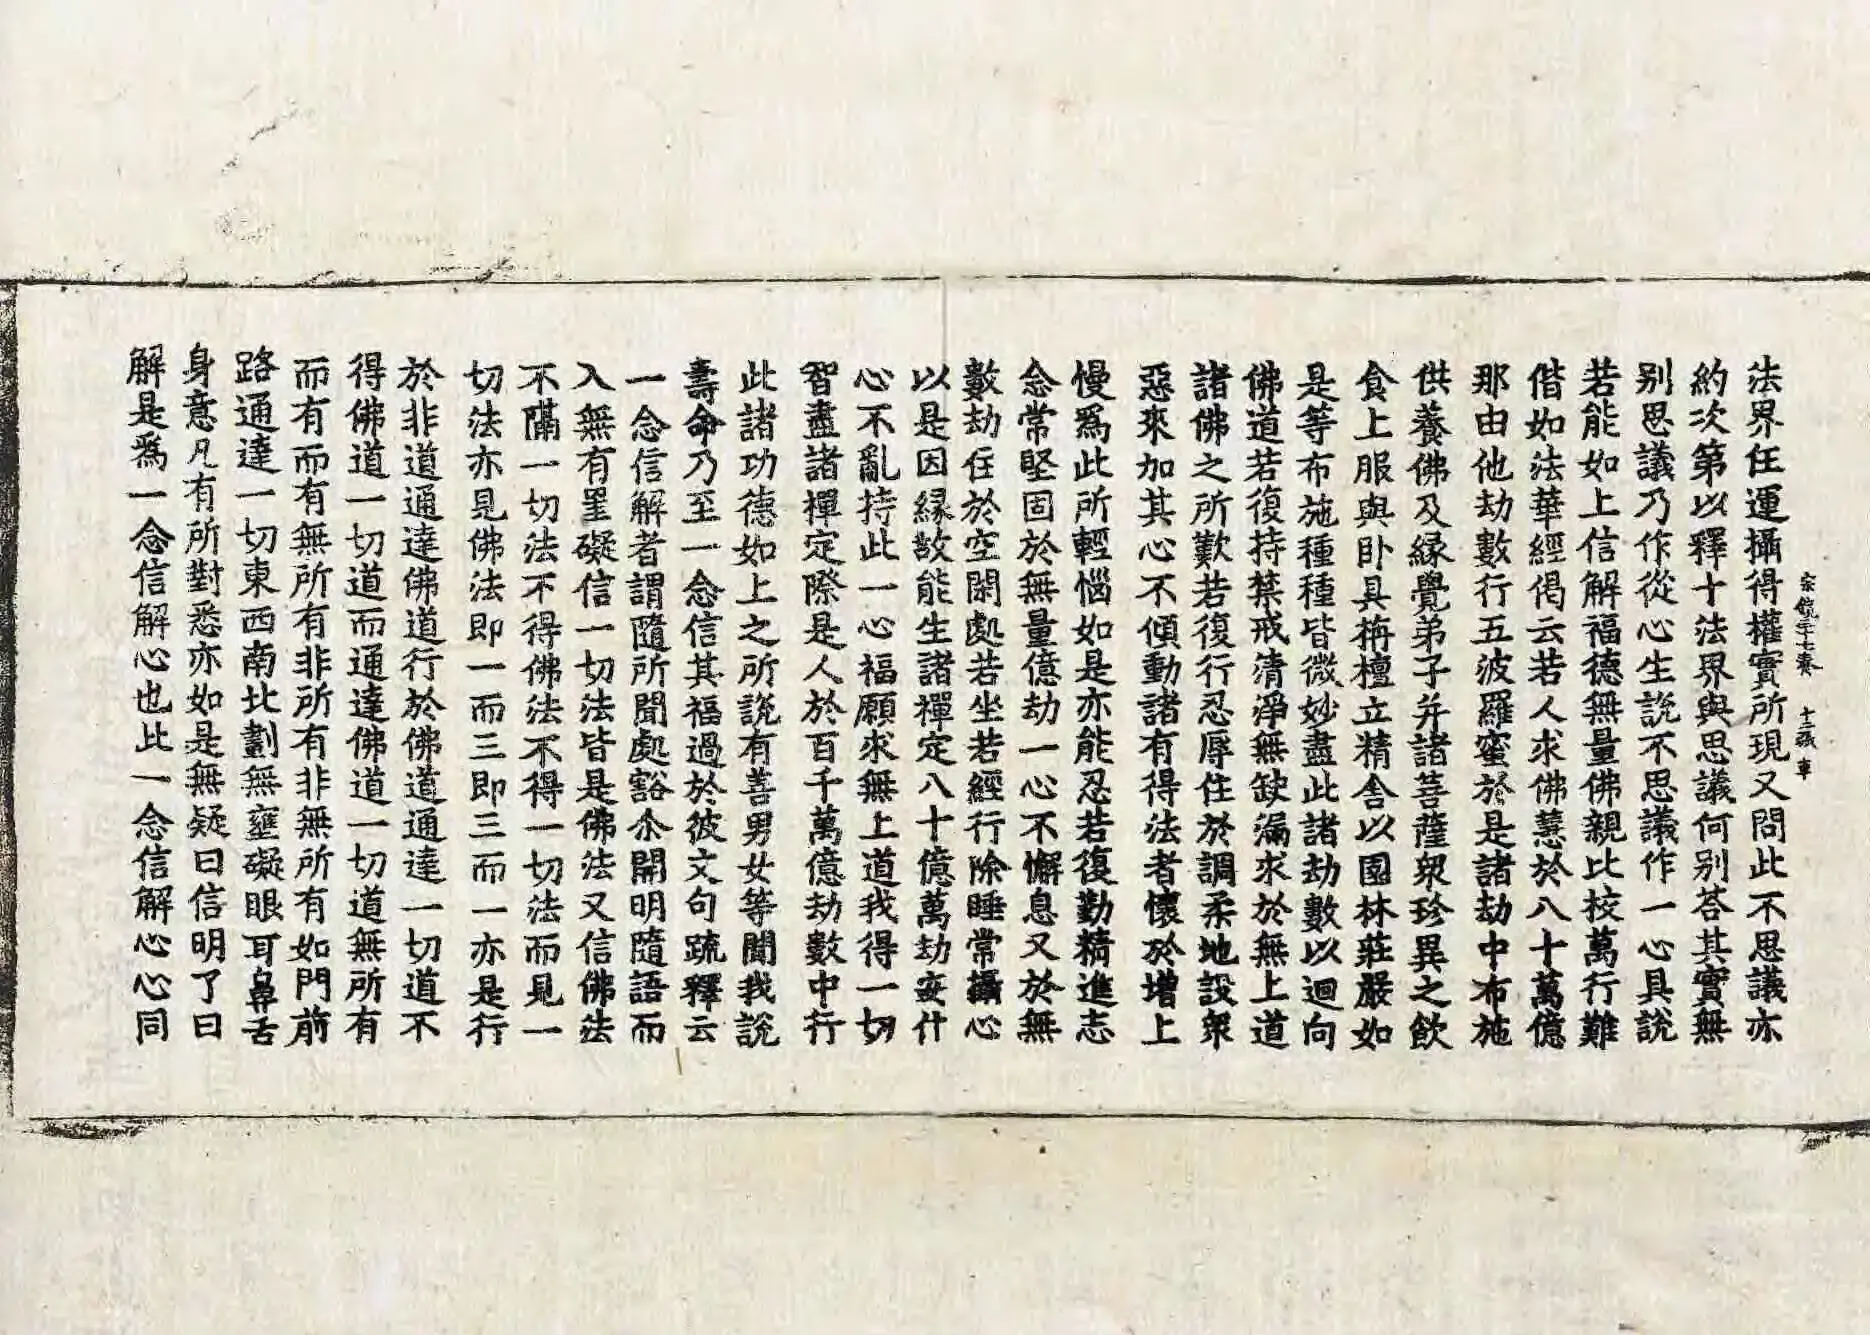 法界任運攝得權實所現又問此不思議亦
宗鏡 十七卷 十三張 車
約次第以釋十法界與思議何別荅其實無
別思議乃作從心生說不思議作一心具說
若能如上信解福德無量佛親比校萬行難
偕如法華經偈云若人求佛慧於八十萬億
那由他劫數行五波羅蜜於是諸劫中布施
供養佛及緣覺弟子并諸菩薩眾珍異之飲
食上服與卧具栴檀立精舍以園林莊嚴如
是等布施種種皆微妙盡此諸劫數以迴向
佛道若復持禁戒清淨無缺漏求於無上道
諸佛之所歎若復行忍辱住於調柔地設衆
惡來加其心不傾動諸有得法者懷於增上
慢為此所輕惱如是亦能忍若復勤精進志
念常堅固於無量億劫一心不懈息又於無
數劫住於空閑處若坐若經行除睡常攝心
以是因緣故能生諸禪定八十億萬劫安住
心不亂持此一心福願求無上道我得一切
智盡諸禪定際是人於百千萬億劫數中行
此諸功德如上之所說有善男女等聞我說
壽命乃至一念信其福過於彼文句疏釋云
一念信解者謂隨所聞處豁尒開明隨語而
入無有罣礙信一切法皆是佛法又信佛法
不隔一切法不得佛法不得一切法而見一
切法亦見佛法即一而三即三而一亦是行
於非道通達佛道行於佛道通達一切道不
得佛道一切道而通達佛道一切道無所有
而有而有無所有非所有非無所有如門前
路通達一切東西南北劃無壅礙眼耳鼻舌
身意凡有所對悉亦如是無疑曰信明了曰
解是為一念信解心也此一念信解心心同